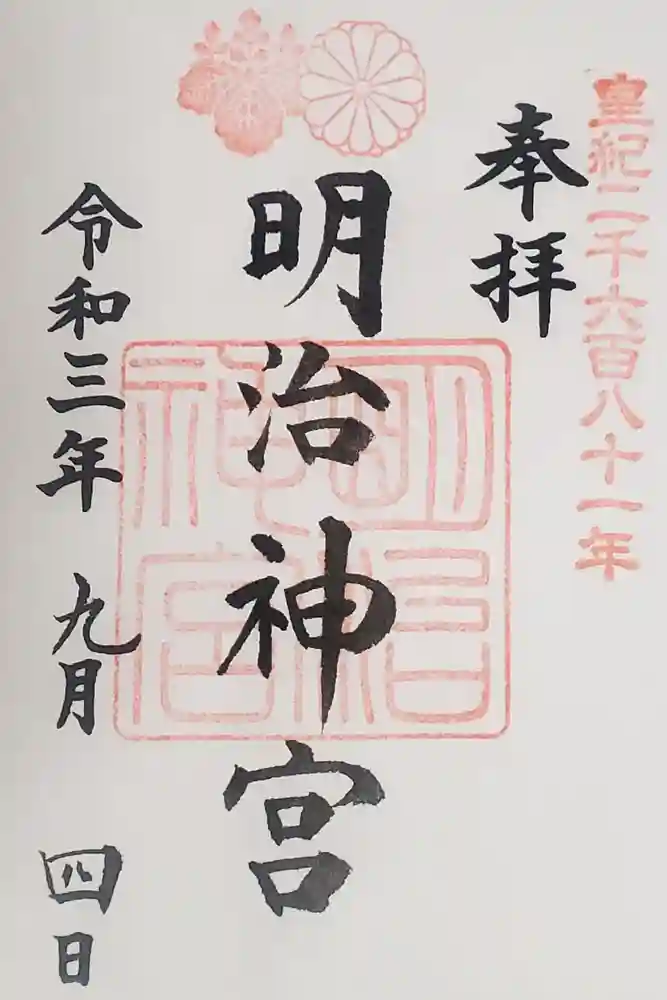 皇紀二千六百八十一年
奉拝
明治神宮
明治神宮
令和三年 九月 四日